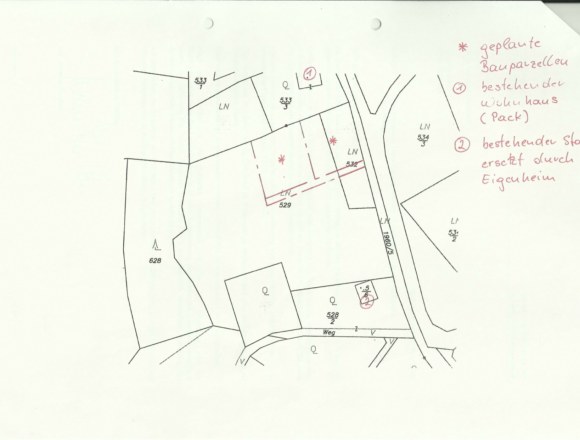 * geplante
Bauparzellen
① bestehendes
wohnhaus
(Pack)
② bestehender
ersetzt durch
Eigenheim
533
1
LN
Q
533
3
①
1
*
*
LN
LN
534
3
LN
529
LN
1960/5
628
Q
Q
528
2
②
Weg
1
V
V
V
Q
2